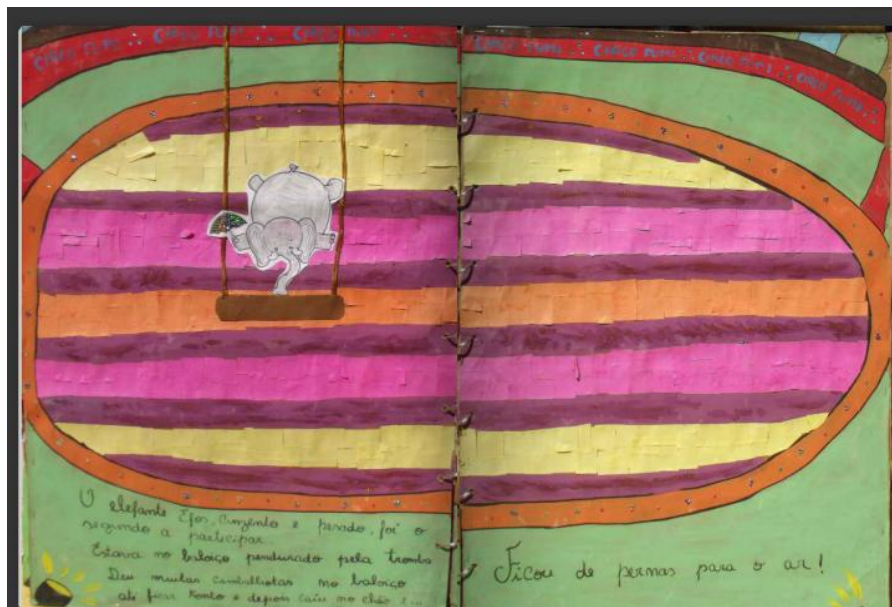 CIRCO FUMI ∴ CIRCO FUMI ∴ CIRCO FUMI
CIRCO FUMI ∴ CIRCO FUMI ∴ CIRCO FUMI ∴ CIRCO FUMI ∴
O elefante Efos, cinzento e pesado, foi o
segundo a participar.
Estava no baloiço pendurado pela tromba
Deu muitas cambalhotas no baloiço
até ficar tonto e depois caiu no chão e...
Ficou de pernas para o ar!